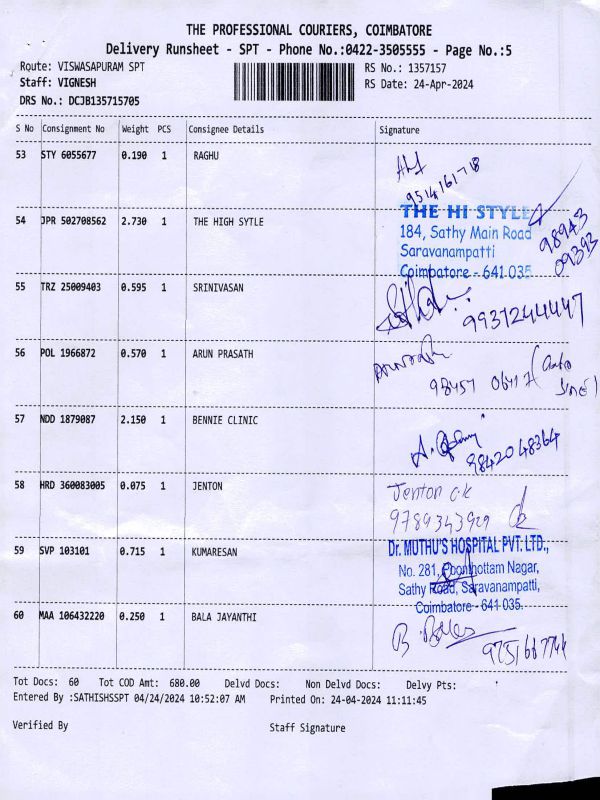 THE PROFESSIONAL COURIERS, COIMBATORE
Delivery Runsheet - SPT - Phone No.:0422-3505555 - Page No.:5
Route: VISWASAPURAM SPT
RS No.: 1357157
Staff: VIGNESH
RS Date: 24-Apr-2024
DRS No.: DCJB135715705
S No Consignment No Weight PCS Consignee Details Signature
53 STY 6055677 0.190 1 RAGHU
9514161718
54 JPR 502708562 2.730 1 THE HIGH SYTLE
THE HI STYLE
184, Sathy Main Road
Saravanampatti
Coimbatore - 641 035
98943
09393
55 TRZ 25009403 0.595 1 SRINIVASAN
9931244447
56 POL 1966872 0.570 1 ARUN PRASATH
57 NDD 1879087 2.150 1 BENNIE CLINIC
9842048364
58 HRD 360083005 0.075 1 JENTON
Jenton
59 SVP 103101 0.715 1 KUMARESAN
Dr. MUTHU'S HOSPITAL PVT. LTD.,
No. 281, Poonthottam Nagar,
Sathy Road, Saravanampatti,
Coimbatore - 641 035.
60 MAA 106432220 0.250 1 BALA JAYANTHI
Tot Docs: 60 Tot COD Amt: 680.00 Delvd Docs: Non Delvd Docs: Delvy Pts:
Entered By :SATHISHSSPT 04/24/2024 10:52:07 AM Printed On: 24-04-2024 11:11:45
Verified By Staff Signature